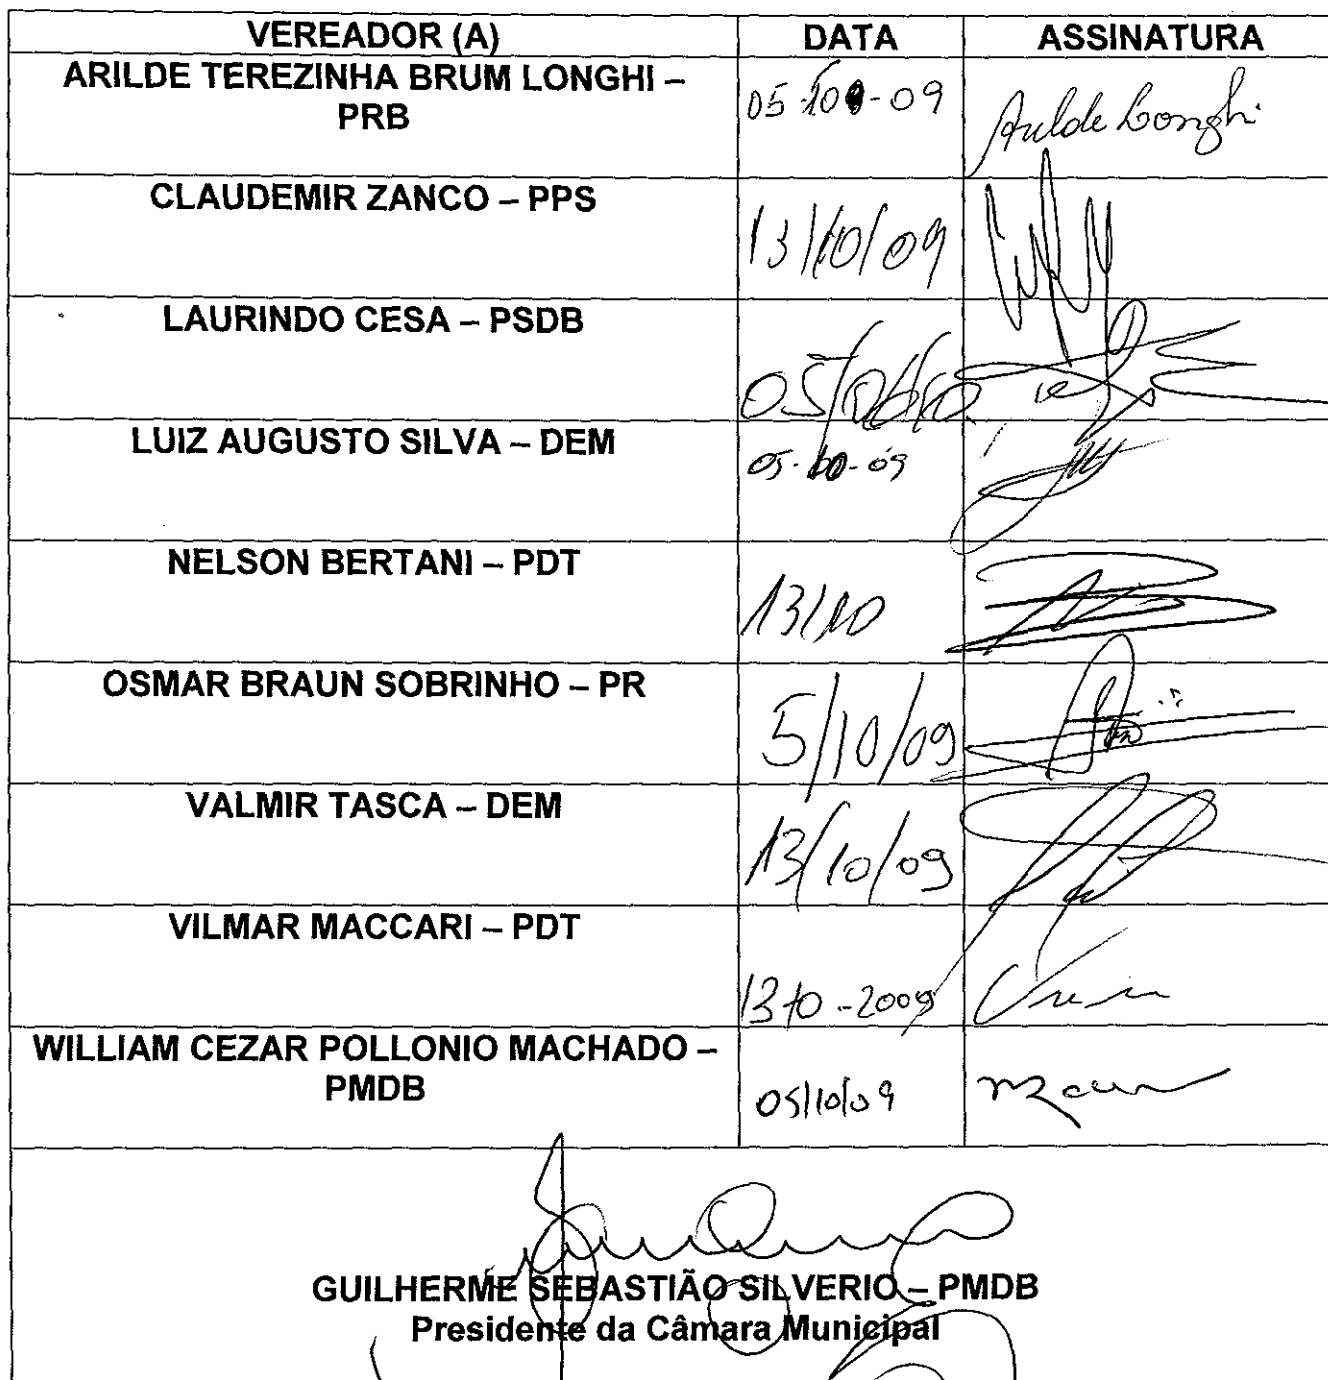 VEREADOR (A) DATA ASSINATURA
ARILDE TEREZINHA BRUM LONGHI –
PRB
05-10-09 Arilde Longhi
CLAUDEMIR ZANCO – PPS
13/10/09
LAURINDO CESA – PSDB
LUIZ AUGUSTO SILVA – DEM
05-10-09
NELSON BERTANI – PDT
13/10
OSMAR BRAUN SOBRINHO – PR
5/10/09
VALMIR TASCA – DEM
13/10/09
VILMAR MACCARI – PDT
13-10-2009
WILLIAM CEZAR POLLONIO MACHADO –
PMDB
05/10/09
GUILHERME SEBASTIÃO SILVERIO – PMDB
Presidente da Câmara Municipal